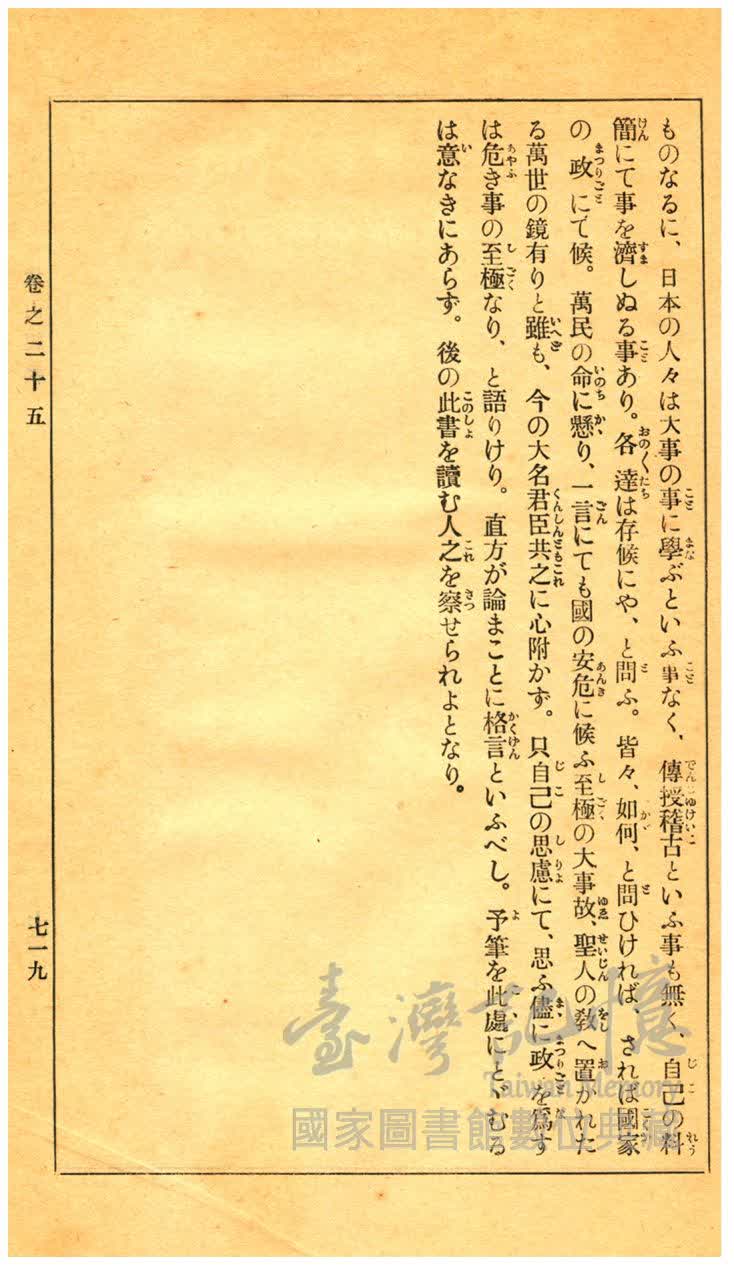 ものなるに、日本の人々は大事の事に學ぶといふ事なく、傳授稽古といふ事も無く、自己の料
簡にて事を濟しぬる事あり。各達は存候にや、と問ふ。皆々、如何、と問ひければ、されば國家
の政にて候。萬民の命に懸り、一言にても國の安危に候ふ至極の大事故、聖人の敎へ置かれた
る萬世の鏡有りと雖も、今の大名君臣共之に心附かず。只自己の思慮にて、思ふ儘に政を爲す
は危き事の至極なり、と語りけり。直方が論まことに格言といふべし。予筆を此處にとゞむる
は意なきにあらず。後の此書を讀む人之を察せられよとなり。
卷之二十五
七一九
臺灣記憶
Taiwan Memory
國家圖書館數位典藏